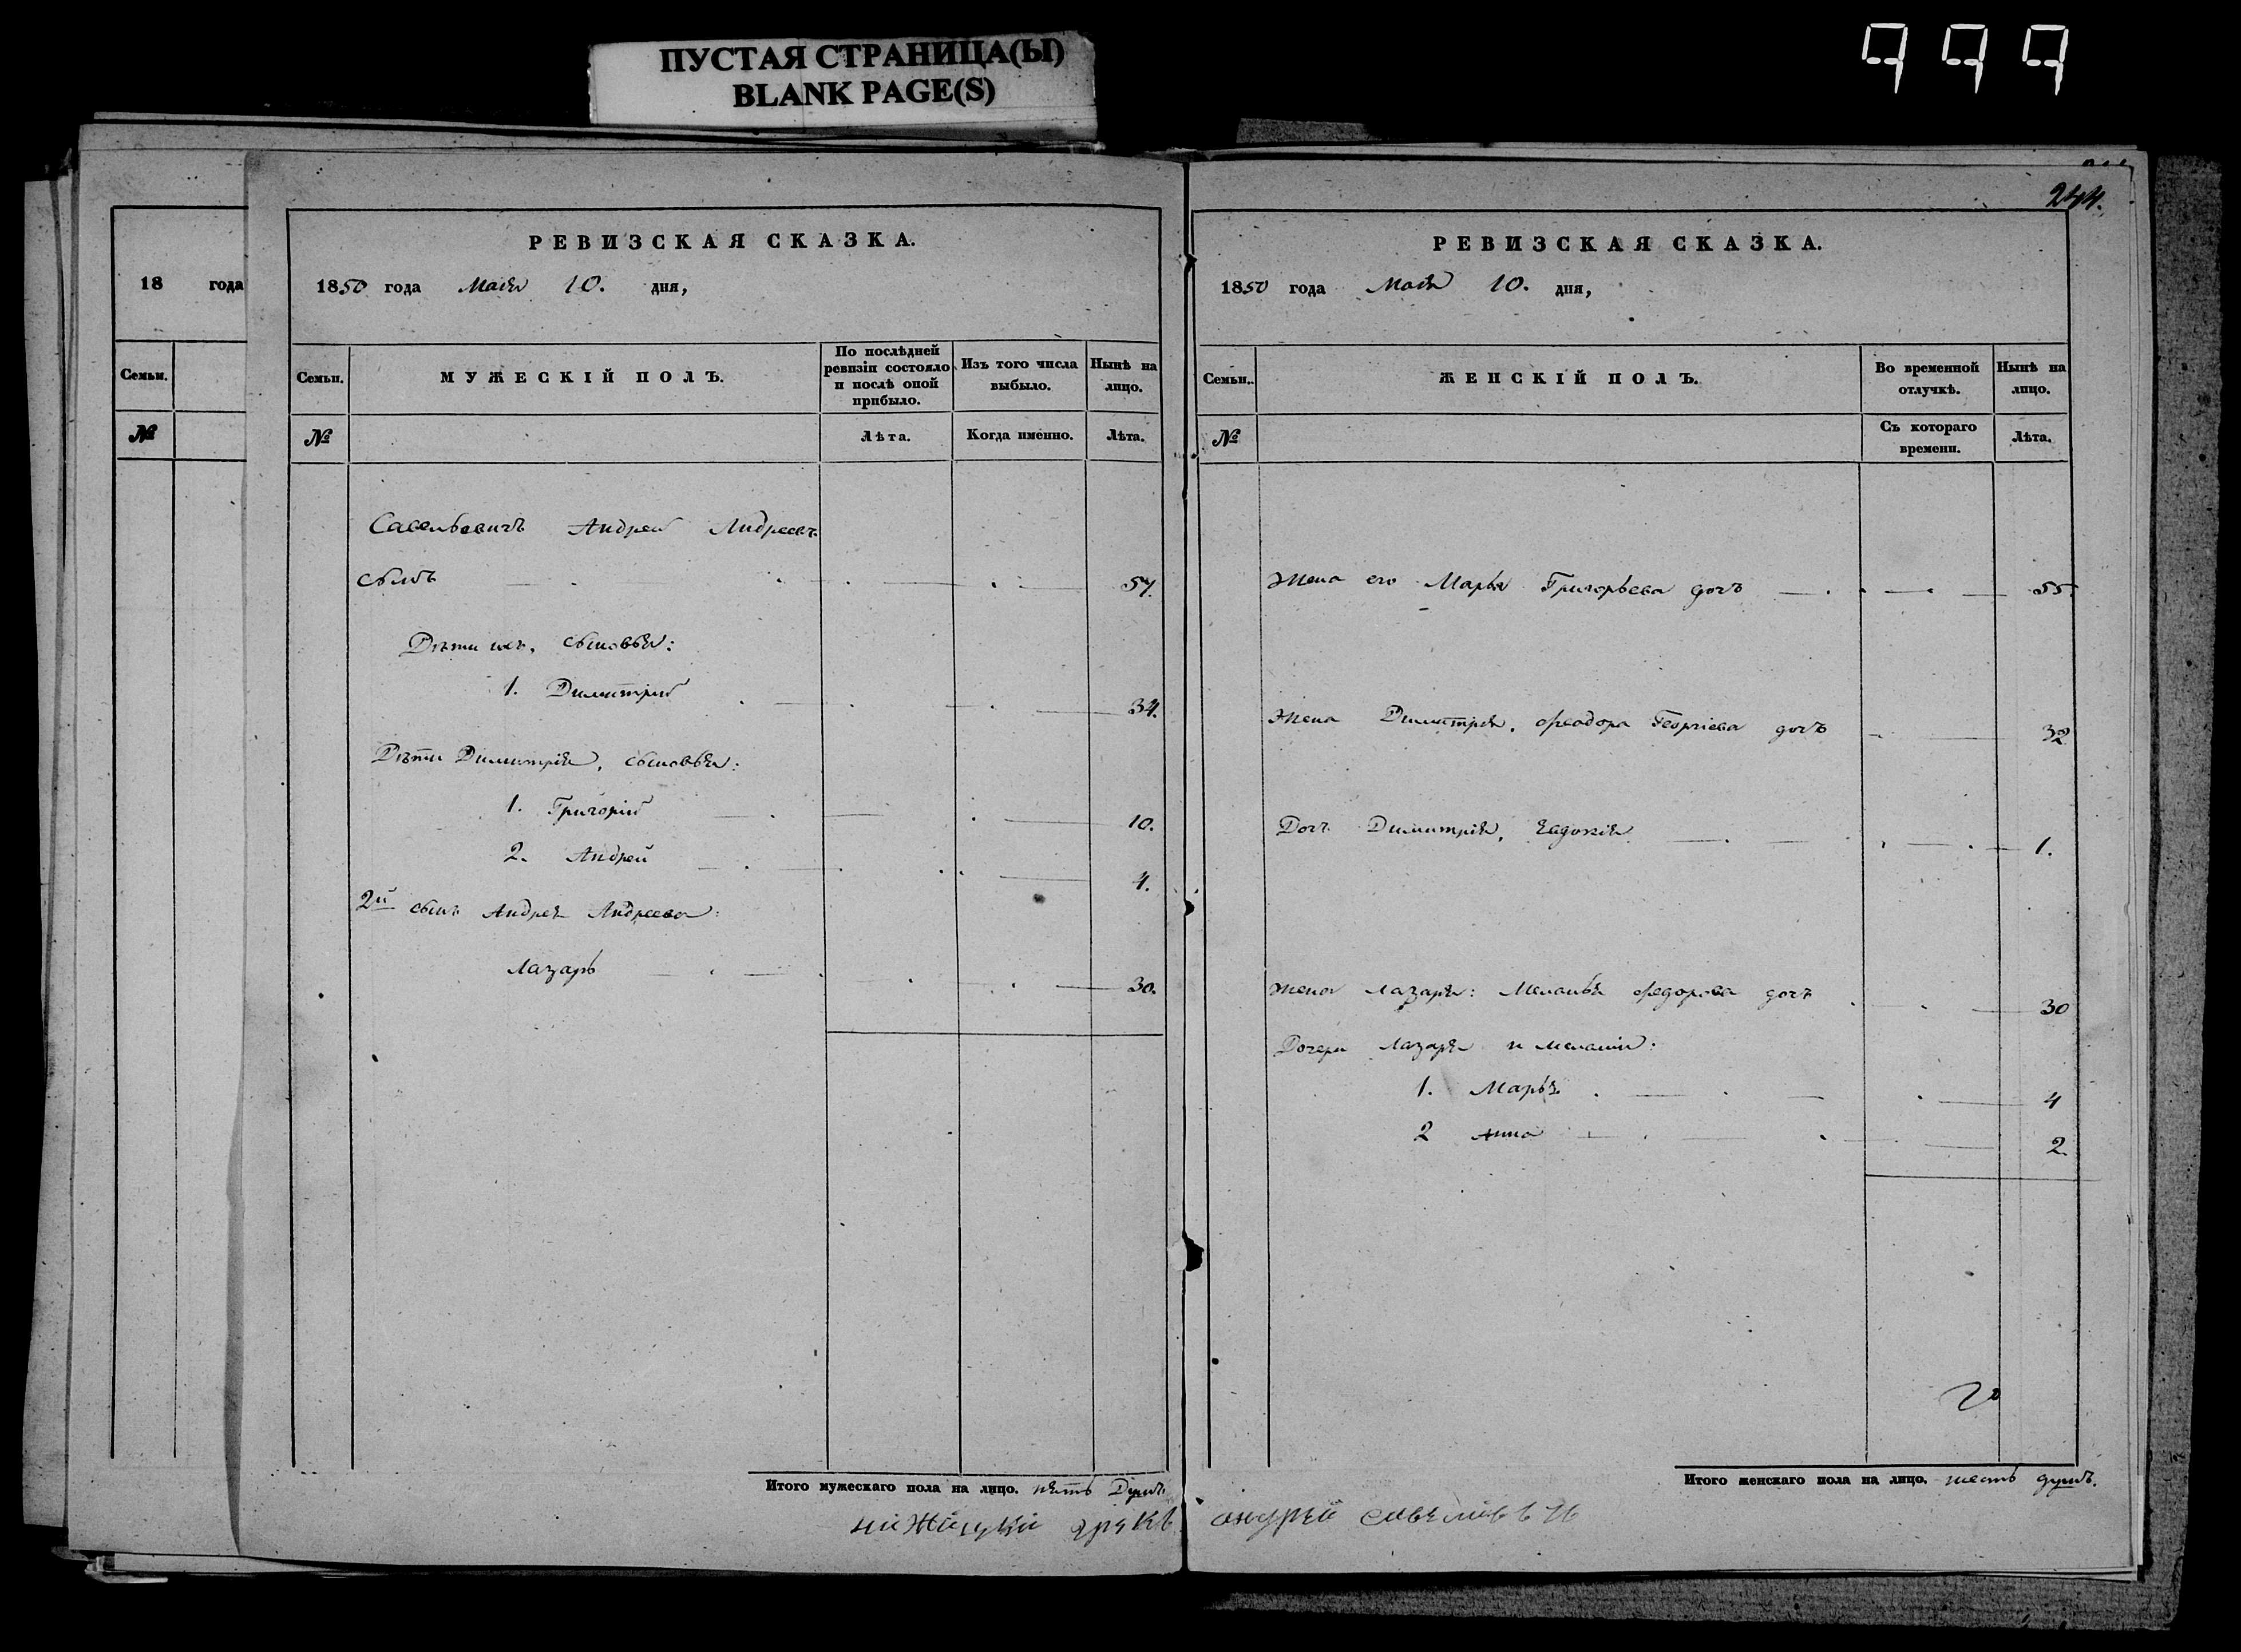 ПУСТАЯ СТРАНИЦА(Ы)
BLANK PAGE(S)
999
18 года
Семьи.
№
РЕВИЗСКАЯ СКАЗКА.
1850 года Маія 10. дня,
Семьи.
МУЖЕСКІЙ ПОЛЪ.
По послѣдней ревизіи состояло и послѣ оной прибыло.
Изъ того числа выбыло.
Нынѣ на лицо.
№
Лѣта.
Когда именно.
Лѣта.
Савельевичъ Андрей Андреевъ
сынъ 57.
Дѣти ихъ, сыновья:
1. Димитрій 34.
Дѣти Димитрія, сыновья:
1. Григорій 10.
2. Андрей 4.
2й сынъ Андрея Андреева:
Лазарь 30.
Итого мужескаго пола на лицо. пять Душъ
244.
РЕВИЗСКАЯ СКАЗКА.
1850 года Маія 10. дня,
Семьи.
ЖЕНСКІЙ ПОЛЪ.
Во временной отлучкѣ.
Нынѣ на лицо.
№
Съ котораго времени.
Лѣта.
Жена его Марья Григорьева дочь 55.
Жена Димитрія, Ѳеодора Георгіева дочь 32
Дочь Димитрія, Евдокія 1.
Жена Лазаря: Меланья Ѳедорова дочь 30
Дочери Лазаря и Меланіи:
1. Марья 4
2 Анна 2.
Итого женскаго пола на лицо. шесть душъ.
грекъ андрей